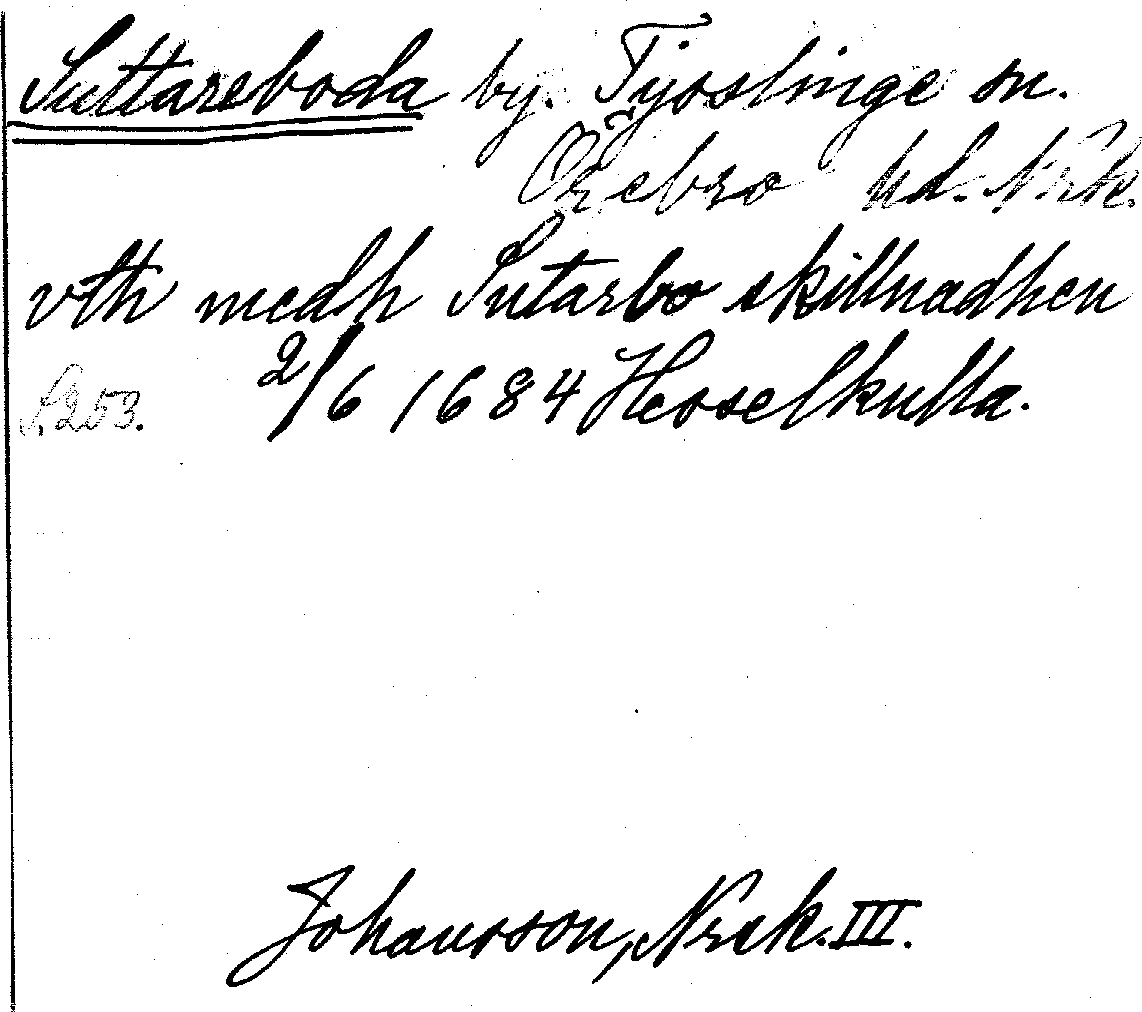 Suttareboda by. Tysslinge sn.
Örebro hd. Nrk.
vth medh Sutarbo skillnadhen
S. 253. 2/6 1684 Hesselkulla.
Johansson, Nrk. III.